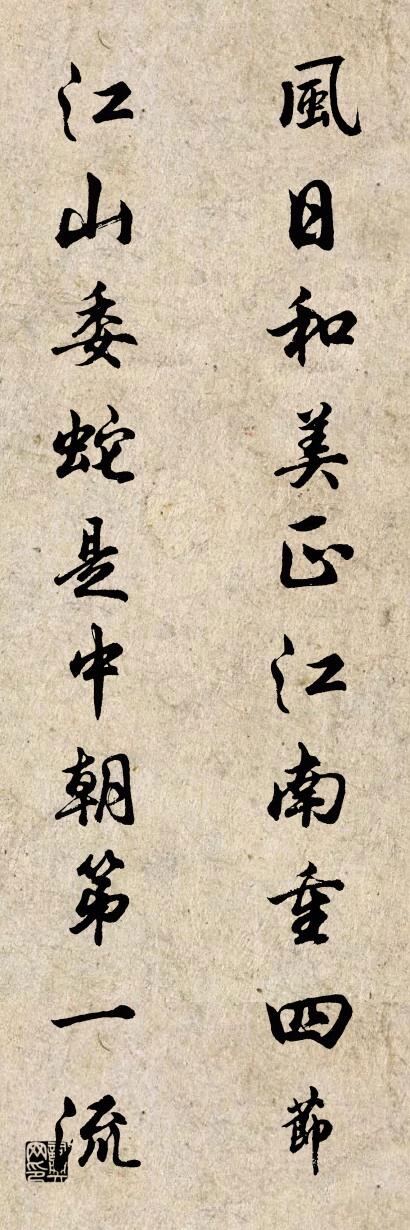 風日和美正江南重四節
江山委蛇是中朝第一流